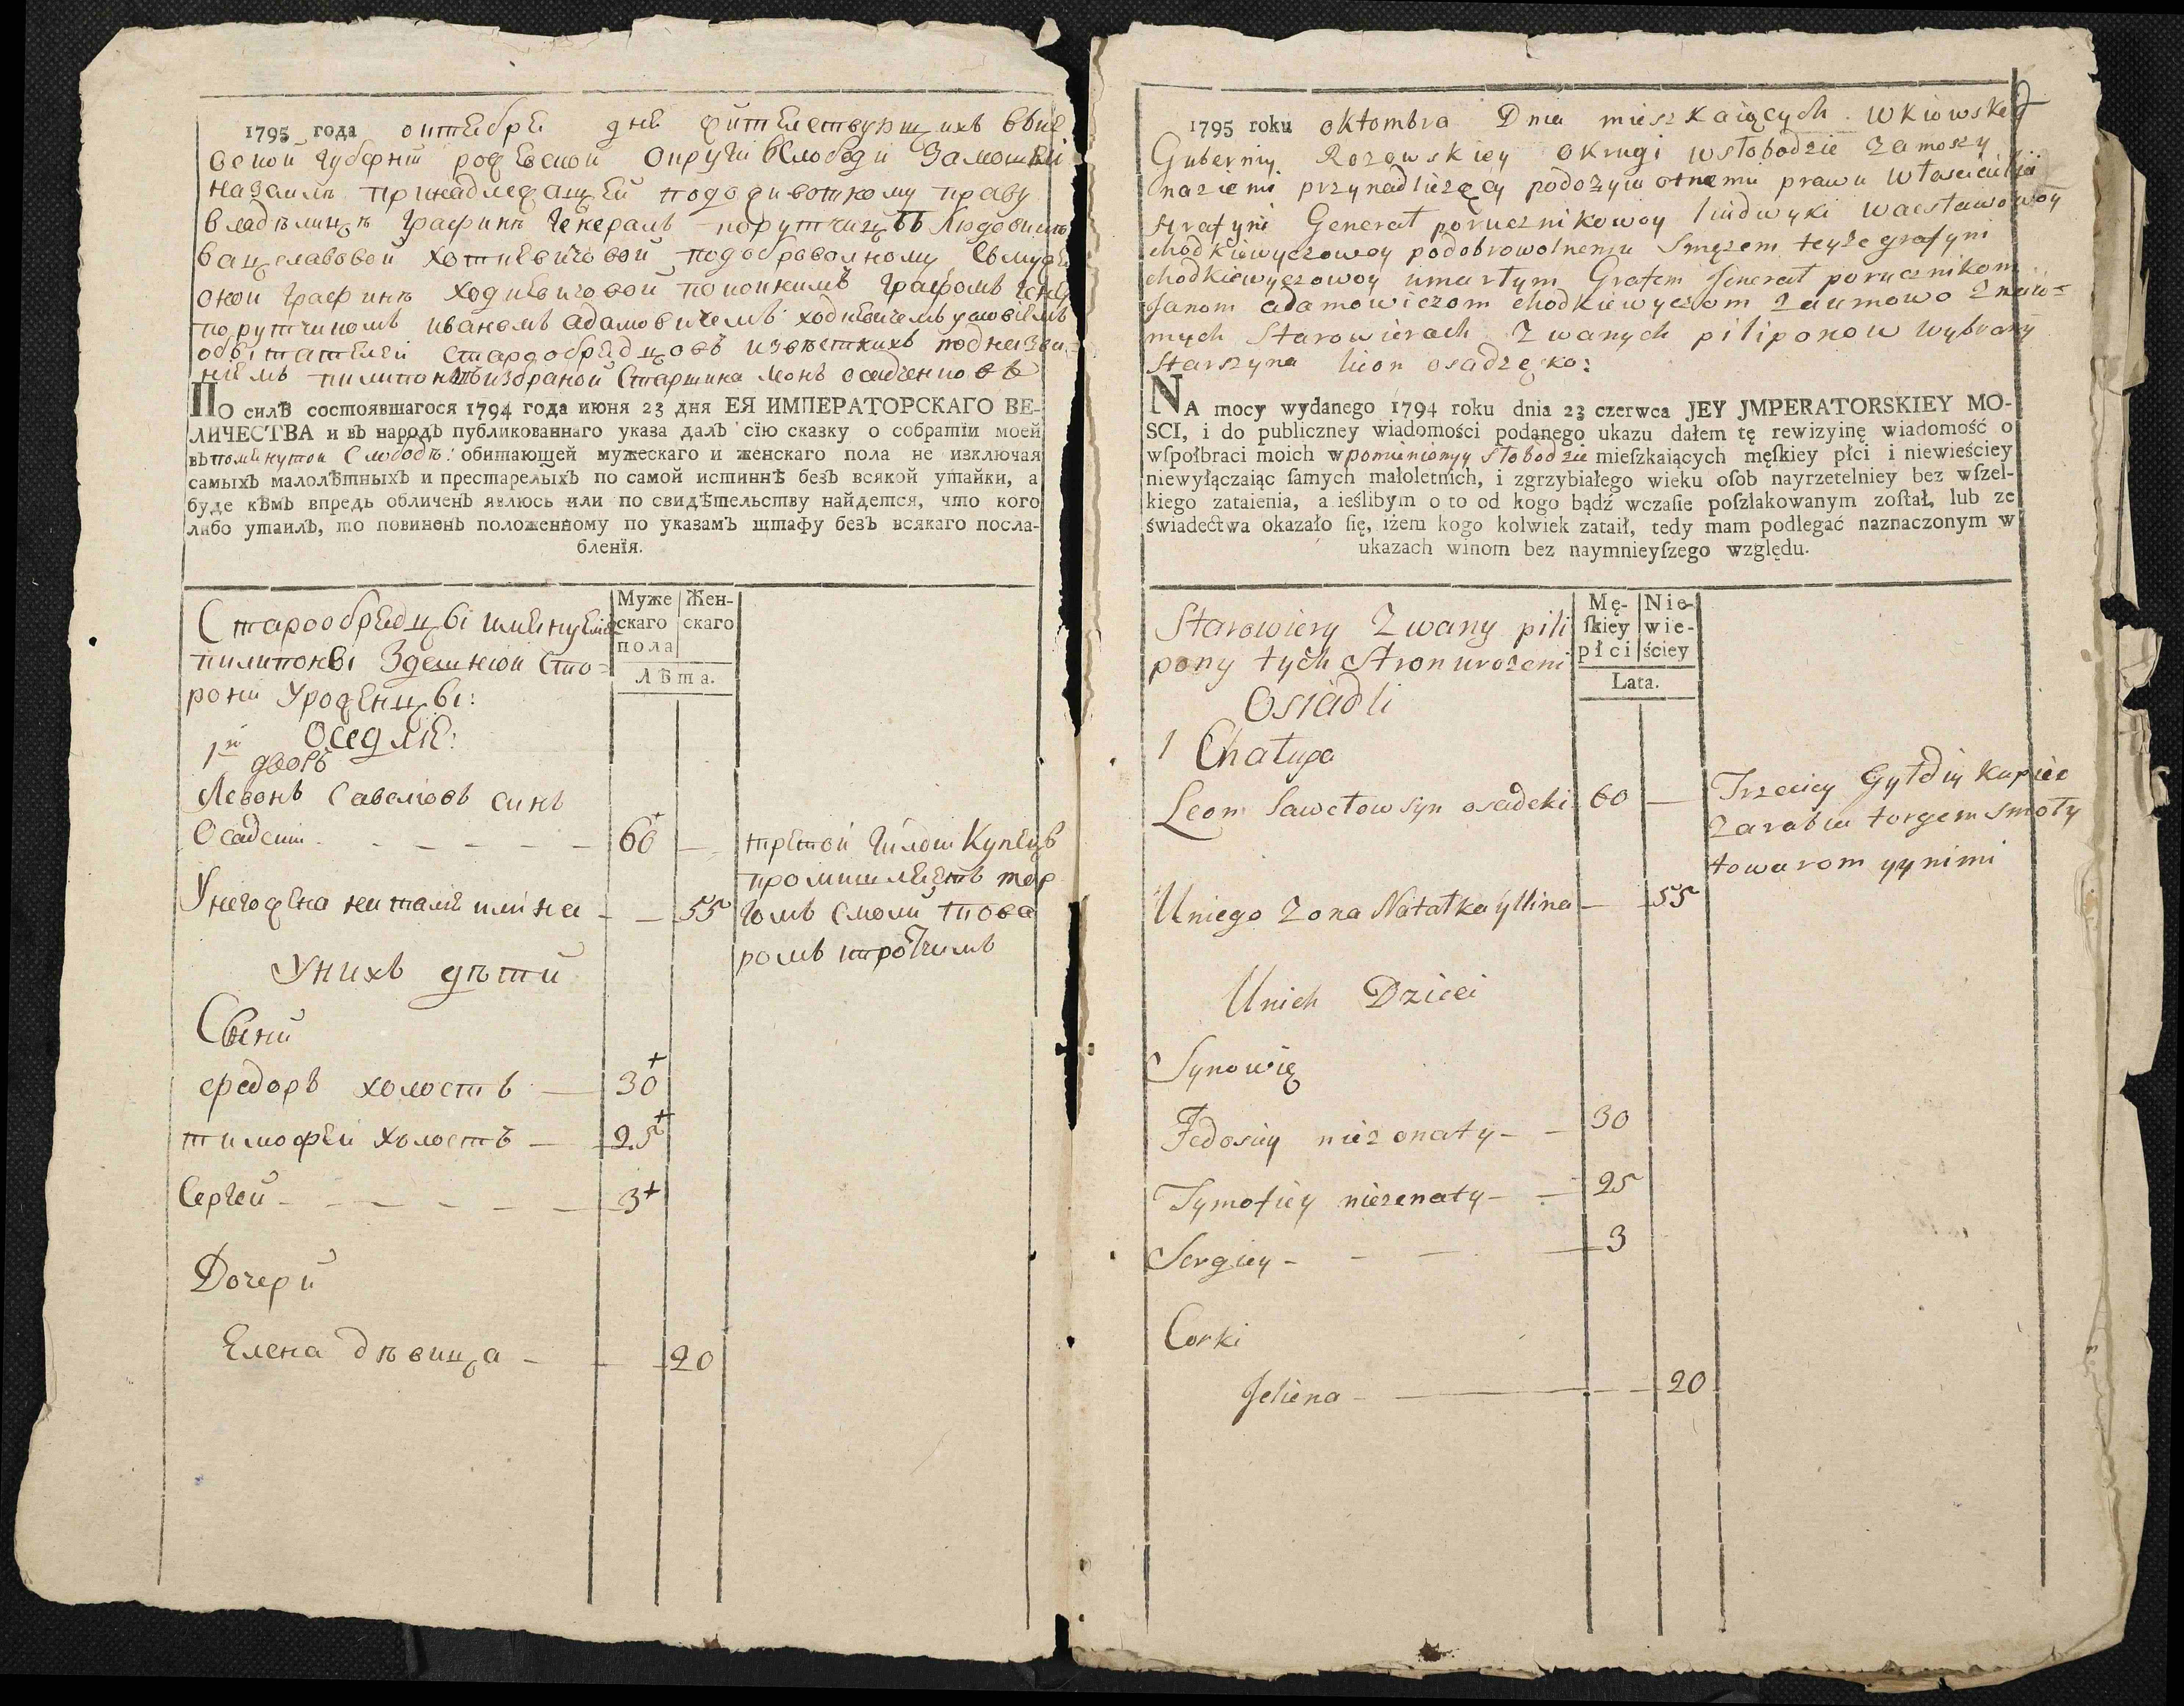 1795 года октебре дне жителствующихъ вкие
вской губернии рожевской округи вслободи Замошни
наземле принадлежащей подоживотному праву
владелице графине Генералъ порутчице Людовике
вацлавовой хоткевичовой подобровалному смужем
оной графине ходкевичовой покойнимъ графомъ Гене
порутчикомъ иваномъ адамовичемъ ходкевичемъ условiемъ
обытателей старообредцовъ известнихъ подназва-
ниемъ пилипонъ избраной старшина леонъ осадченковъ
ПО силѣ состоявшагося 1794 года июня 23 дня ЕЯ ИМПЕРАТОРСКАГО ВЕ-
ЛИЧЕСТВА и въ народъ публикованнаго указа далъ сїю сказку о собратїи моей
въпоминутой Слободе: обитающей мужескаго и женскаго пола не изключая
самыхъ малолѣтныхъ и престарелыхъ по самой истиннѣ безъ всякой утайки, а
буде кѣмъ впредь обличенъ явлюсь или по свидѣтельству найдется, что кого
либо утаилъ, то повиненъ положенному по указамъ штафу безъ всякаго посла-
бленїя.
Муже
скаго
пола
Жен-
скаго
Лѣта.
Старообредцы имянуемие
пилипоны Здешной Сто-
рони Уроженцы:
Оседлие:
1й дворъ
Левонъ Савелiовъ синъ
Осадчий - - - - - 60 —
третой Гилди Купецъ
промишляетъ тор
гомъ смоли това
ромъ ипротчимъ
Унегожена наталя илiна - — 55
Унихъ дѣти
Сыни
федоръ холостъ — 30
тимофей холостъ — 25
Сергей - - - - - 3
Дочери
Елена дѣвица - — 20
1795 roku oktombra Dnia mieszkaiących wkiowskey
Guberniy Rozowskiey okrugi wsłobodzie Zamoszy
naziemi przynadlieżący podożywotnemu prawu własciciełki
Hrafyni Generał porucznikowoy ludwyki wacsławowoy
chodkiewyczowoy podobrowolnemu Smężem teyże grafyni
chodkiewyczowoy umartym Grafem Jenerał porucznikom
Janom adamowiczom chodkiewyczom zaumowo znaio=
mych Starowierach Zwanych piliponow wybrany
Starszyna lieon osadzęko:
NA mocy wydanego 1794 roku dnia 23 czerwca JEY JMPERATORSKIEY MO-
SCI, i do publiczney wiadomości podanego ukazu dałem tę rewizyinę wiadomość o
wſpołbraci moich wpomienionyy słobodzie mieſzkaiących męſkiey płci i niewieściey
niewyłączaiąc ſamych małoletnich, i zgrzybiałego wieku oſob nayrzetelniey bez wſzel-
kiego zataienia, a ieślibym o to od kogo bądź wczaſie poſzlakowanym zoſtał, lub ze
świadectwa okazało ſię, iżem kogo kolwiek zataił, tedy mam podlegać naznaczonym w
ukazach winom bez naymnieyſzego względu.
Mę-
ſkiey
płci
Nie-
wie-
ściey
Lata.
Starowiery Zwany pili
pony tych Stron urożeni
Osiadli
1 Chałupa
Leon Sawełow syn osadcki 60 —
Trzeciey Gyłdiy kupiec
zarabia torgem smoły
towarom yynimi
Uniego Zona Natałka yllina — 55
Unich Dzieci
Synowię
Fedosiiy nieżonaty - — 30
Tymofiey nieżenaty - — 25
Sergiey - - — 3
Corki
Jeliena - — — 20